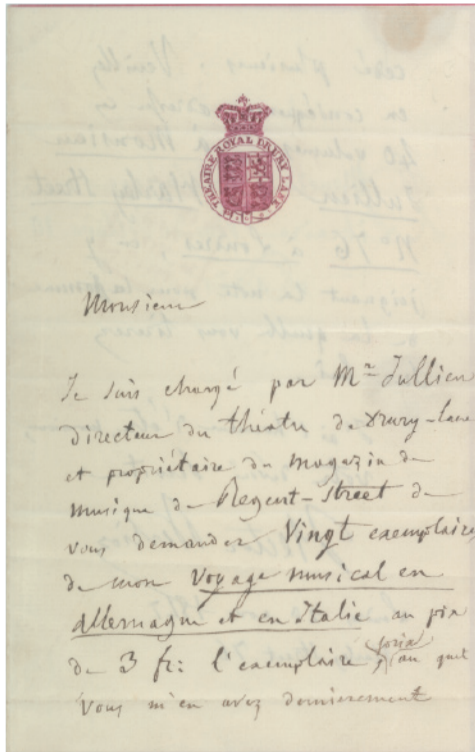 THEATRE ROYAL DRURY LANE
Monsieur
Je suis chargé par Mr Jullien
directeur du théâtre de Drury-lane
et propriétaire du magazin de
musique de Regent-street de
vous demander Vingt exemplaires
de mon Voyage musical en
allemagne et en Italie au prix
de 3 fr: l'exemplaire, prix au quel
vous m'en avez dernierement